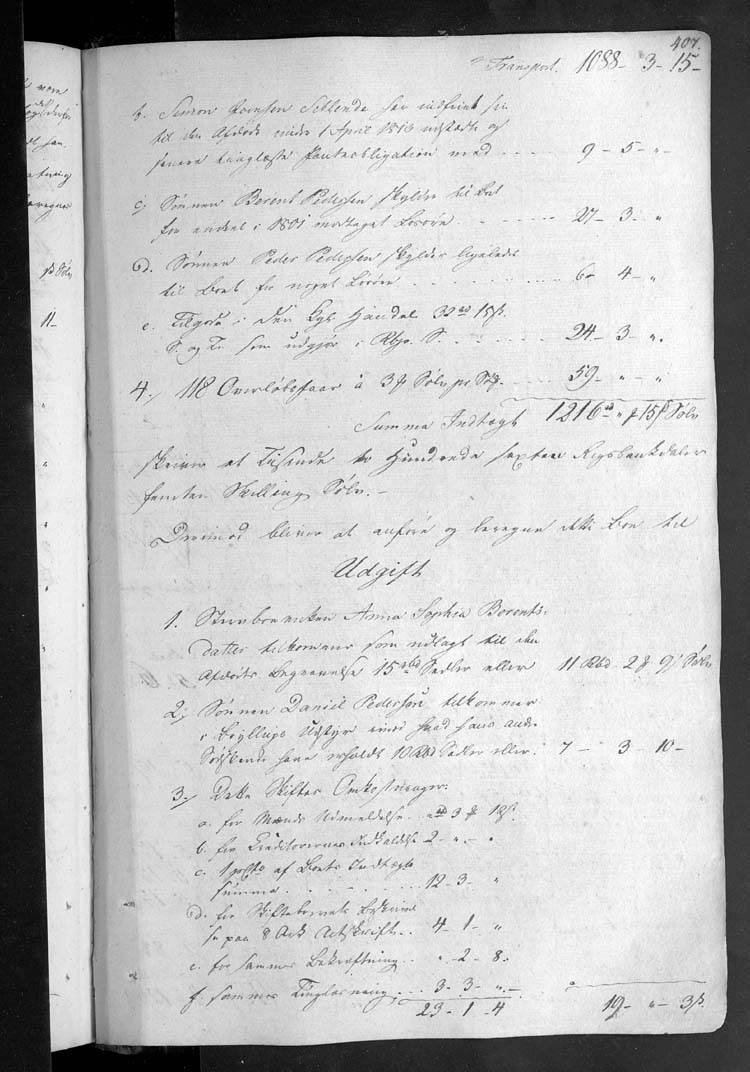 407.
Transport. 1088 - 3 - 15 -
b. Simon Joensen Sellende har indfriet sin
til den Afdøde under 1 April 1816 udstædte og
senere tinglæste Panteobligation med - - - - 9 - 5 - "
c, Sønnen Berent Pedersen skylder til Boet
for endeel i 1801 modtaget Løsøre - - - - 27 - 3 - "
d. Sønnen Peder Pedersen skylder ligeledes
til Boet for noget Løsøre - - - - 6 - 4 - "
e. Tilgode i den Kgl. Handel 32 rd 15 ß.
S. og T. som udgjør i Rbp. S. - - - - 24 - 3 - "
4, 118 Overløbsfaar à 3 ₰ Sølv pr Stk. - - 59 - " - "
Summa Indtægt 1216 rd " ₰ 15 ß Sølv
skriver et Tusinde to Hundrede sexten Rigsbankdaler
femten Skilling Sølv. -
Derimod bliver at anføre og beregne dette Boe til
Udgift
1. Stervboeenken Anna Sophia Berents-
datter tilkommer som udlagt til den
Afdødes Begravelse 15 rbd Sedler eller 11 Rbd 2 ₰ 9 ß Sølv
2, Sønnen Daniel Pedersen tilkommer
i Bryllups Udstyr imod hvad hans andre
Sødskende have erholdt 10 Rbd Sedler eller. 7 - 3 - 10 -
3, Dette Skiftes Omkostninger:
a. for Mænds Udmeldelse. " rd 3 ₰ 12 ß.
b. for Creditorernes Indkaldelse 2 - " - "
c. 1 pCto af Boets Indtægts
summa - - - - 12 - 3 - "
d. for Skiftebrevets Beskrivel-
se paa 8 Ark Actskrift.. 4 - 1 - "
e. for sammes Bekræftning.. " - 2 - 8.
f. sammes Tinglæsning... 3 - 3 - " -
23 - 1 - 4 19 - " - 3 ß.